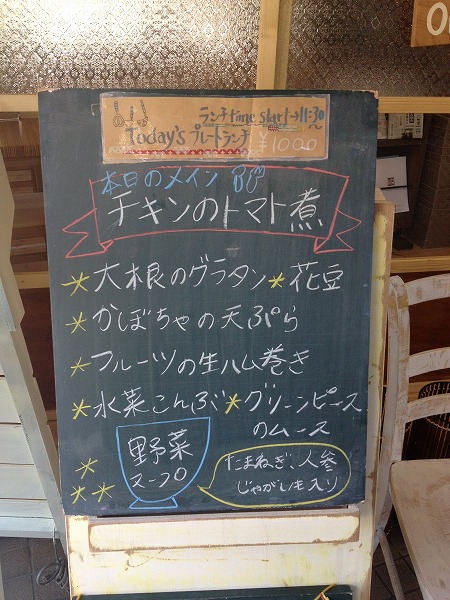 ランチtime start→11:30〜
Today's プレートランチ ¥1000
本日のメイン
チキンのトマト煮
*大根のグラタン*花豆
*かぼちゃの天ぷら
*フルーツの生ハム巻き
*水菜こんぶ*グリーンピース
のムース
野菜
スープ
たまねぎ、人参
じゃがいも入り